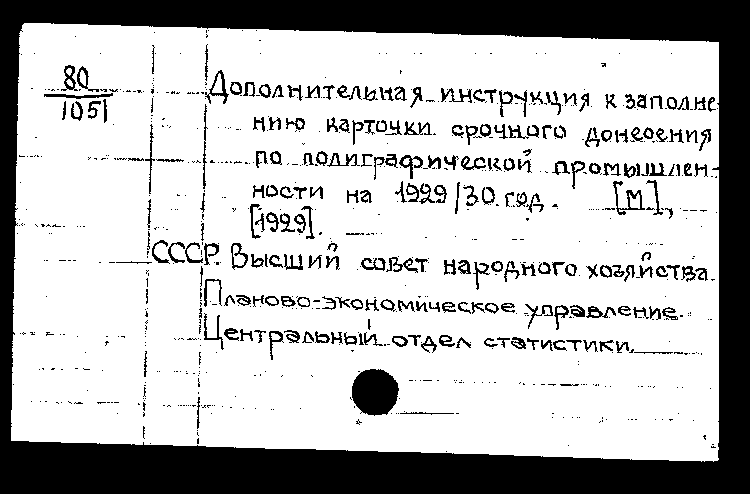 80
1051
Дополнительная инструкция к заполне-
нию карточки срочного донесения
по полиграфической промышлен-
ности на 1929/30 год. [М],
[1929].
СССР. Высший совет народного хозяйства.
Планово-экономическое управление.
Центральный отдел статистики.